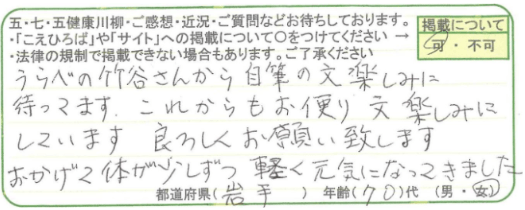 五・七・五健康川柳・ご感想・近況・ご質問などお待ちしております。
・「こえひろば」や「サイト」への掲載について○をつけてください →
・法律の規制で掲載できない場合もあります。ご了承ください
掲載について
可・不可
うらべの竹谷さんから自筆の文楽しみに
待ってます.これからもお便り文楽しみに
しています 良ろしくお願い致します
おかげで体が少しずつ軽く元気になってきました
都道府県(岩手)年齢(70)代(男・女)